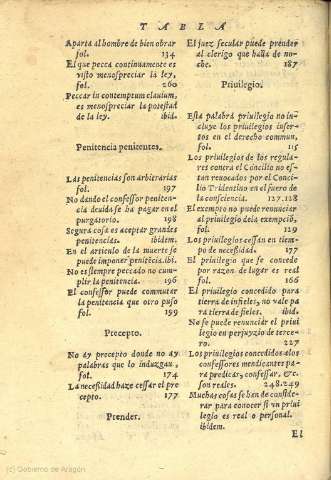 TABLA
Aparta al hombre de bien obrar
fol. 134
El que pecca continuamente es
visto menospreciar la ley,
fol. 260
Peccar in contemptum clauium,
es menospreciar la potestad
de la ley. ibid.
Penitencia penitentes.
Las penitencias son arbitrarias
fol. 197
No dando el confessor peniten-
cia deuida se ha pagar en el
purgatorio. 198
Segura cosa es aceptar grandes
penitencias. ibidem.
En el articulo de la muerte se
puede imponer penitẽcia. ibi.
No es siempre peccado no cum-
plir la penitencia. 196
El confessor puede commutar
la penitencia que otro puso
fol. 199
Precepto.
No ay precepto donde no ay
palabras que lo induzgan,
fol. 174
La necessidad haze cessar el pre
cepto. 177
Prender.
El juez secular puede prender
al clerigo que halla de no-
che. 187
Priuilegio.
Esta palabra priuilegio no in-
cluye los priuilegios inser-
tos en el derecho commun,
fol. 115
Los priuilegios de los regula-
res contra el Concilio no es-
tan reuocados por el Conci-
lio Tridentino en el fuero de
la consciencia. 127.128
El exempto no puede renunciar
al priuilegio dela exempciõ,
fol. 129
Los priuilegios cessan en tiem-
po de necessidad. 177
El priuilegio que se concede
por razon de lugar es real
fol. 166
El priuilegio concedido para
tierra de infieles, no vale pa
ra tierra de fieles. ibid.
No se puede renunciar el priui
legio en perjuyzio de terce-
ro. 227
Los priuilegios concedidos a los
confessores mendicantes pa-
ra predicar, confessar, &c.
son reales. 248.249
Muchas cosas se han de conside-
rar para conocer si vn priui
legio es real o personal.
ibidem.
El
(c) Gobierno de Aragón